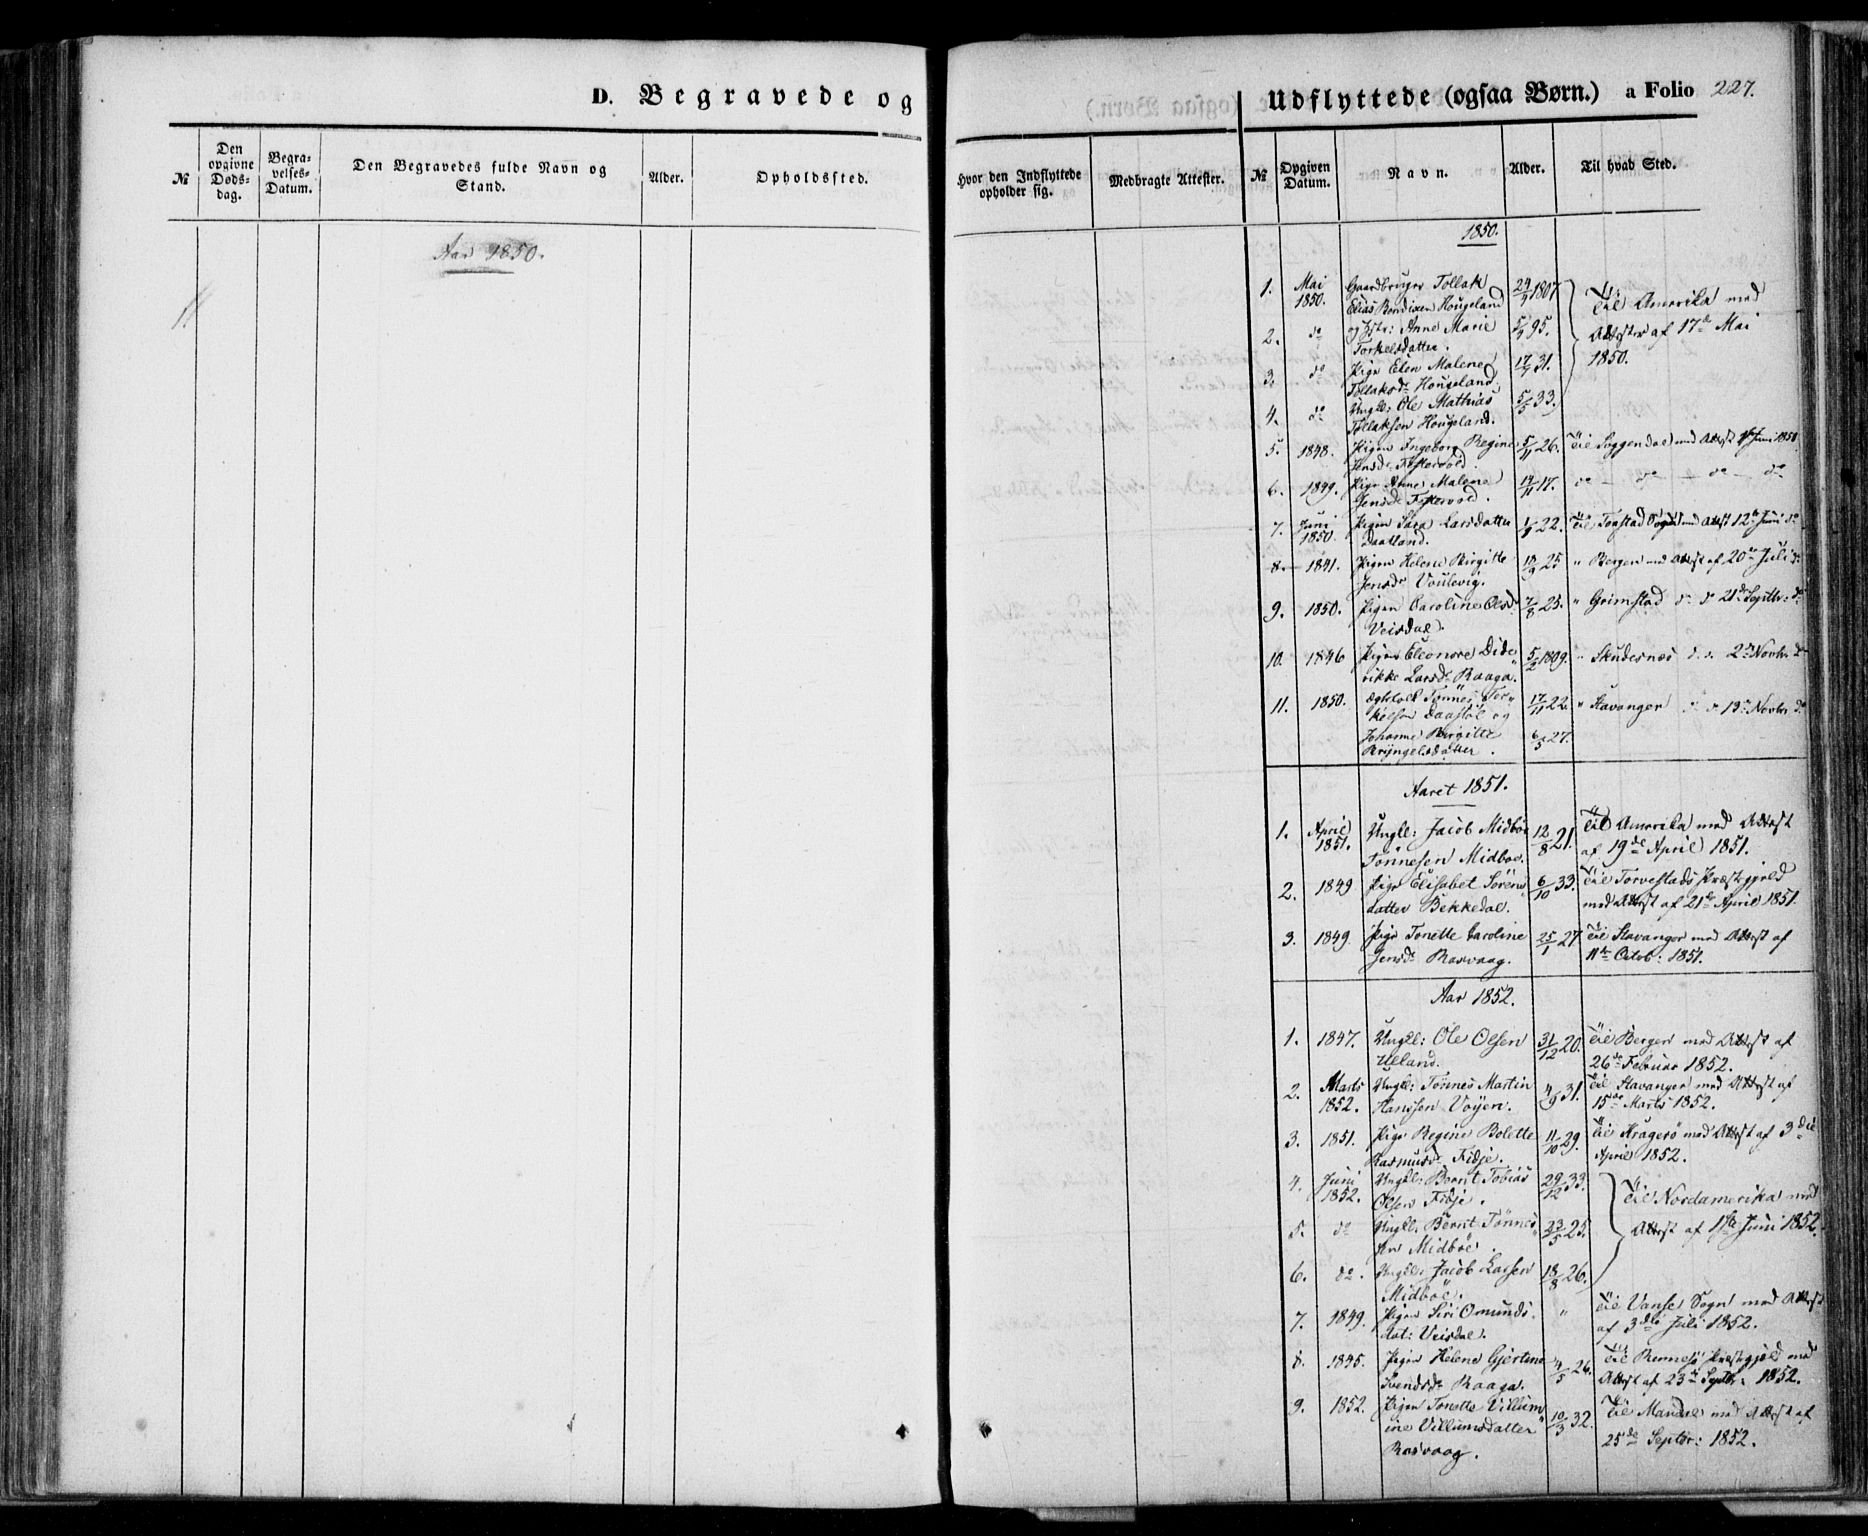 D. Begravede og
№
Den opgivne Døds-dag.
Begra-velses-Datum.
Den Begravedes fulde Navn og Stand.
Alder.
Opholdssted.
Aar 1850.
Udflyttede (ogsaa Børn.) a Folio 227.
Hvor den Indflyttede opholder sig.
Medbragte Attester.
№
Opgiven Datum.
Navn.
Alder.
Til hvad Sted.
1850.
1. Mai 1850. Gaardbruger Tollak 24/9 1807
Elias Bendixen Hougeland
2. do og Hstr: Anne Marie 5/9 95.
Torkelsdatter.
Til Amerika med
Attester af 17de Mai
1850.
3. do Pige Elen Malene 17/9 31.
Tollaksdr Hougeland.
4. do Ungk: Ole Mathias 5/5 33.
Tollaksen Hougeland.
5. 1848. Pigen Ingeborg Regine 5/11 26. Til Soggendal med Attest 1ste Juni 1850
Jensdr Festervold.
6. 1849. Pige Anne Malene 14/11 17. do — do — do — do
Jensdr Festervold.
7. Juni 1850. Pigen Sara Larsdatter 1/9 22. Til Tonstad Sogn med Attest 12te Juni do
Daatland.
8. 1841. Pigen Helene Birgitte 18/9 25 " Bergen med Attest af 20de Juli do
Jensdr Voulevig.
9. 1850. Pigen Caroline Olsdr 7/8 25. " Grimstad do do 21de Septbr: do
Veisdal.
10. 1846 Pigen Eleonore Dide 5/2 1809. " Skudesnæs do do 2den Novbr do
rikke Larsdr Raaga.
11. 1850. Ægtefolk Tønnes Ter" 17/11 22. " Stavanger do do 13de Novbr do
kelsen Daastøl og
Johanne Birgitte 6/5 27.
Bryngelsdatter.
Aaret 1851.
1. April 1851. Ungk: Jacob Midbøe 12/8 21. Til Amerika med Attest
Tønnesen Midboe. af 19de April 1851.
2. 1849 Pige Elisabet Sørens 6/10 33. Til Torvestads Præstegjeld
datter Bekkedal. med Attest af 21de April 1851.
3. 1849. Pige Tonette Caroline 25/1 27 Til Stavanger med Attest af
Jensdr Rasvaag. 11te Octob: 1851.
Aar 1852.
1. 1847. Ungk: Ole Olsen 31/12 20. Til Bergen med Attest af
Ueland. 26de Februar 1852.
2. Marts 1852. Ungk: Tønnes Martin 4/9 31. Til Stavanger med Attest af
Hanssen Voyen. 15de Marts 1852.
3. 1851. Pige Regine Bolette 11/10 29. Til Kragerø med Attest af 3die
Rasmusdr Fidje. April 1852.
4. Juni 1852. Ungk: Bernt Tobias 29/12 33.
Olsen Fidje.
Til Nordamerika med
Attest af 1ste Juni 1852.
5. do Ungk: Bernt Tønnes 23/5 25.
sen Midbøe.
6. do. Ungk: Jacob Larsen 18/8 26.
Midbøe.
7. 1849. Pigen Siri Omunds " Til Vanse Sogn med Attest
dat: Veisdal. af 3die Juli 1852.
8. 1845. Pigen Helene Gjertine 4/5 26. Til Rennesø Præstegjeld med
Svendsdr Raaga. Attest af 23de Septbr: 1852.
9. 1852. Pigen Tonette Villum 10/3 32. Til Mandal med Attest af
ine Villumsdatter 25de Septbr: 1852.
Rasvaag.